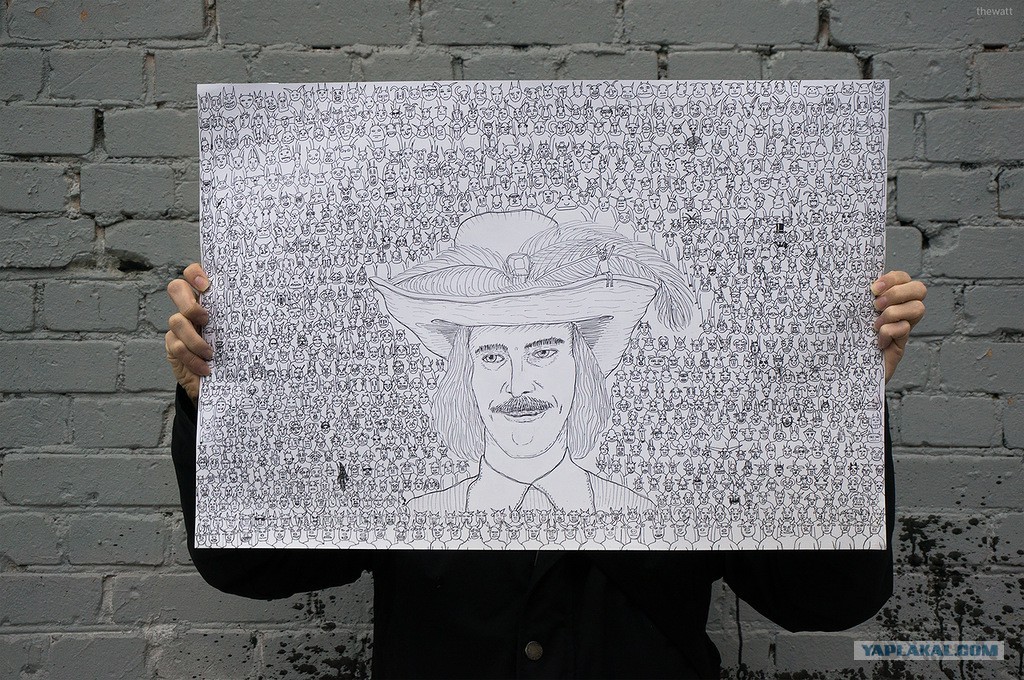 thewatt
YAPLAKAL.COM